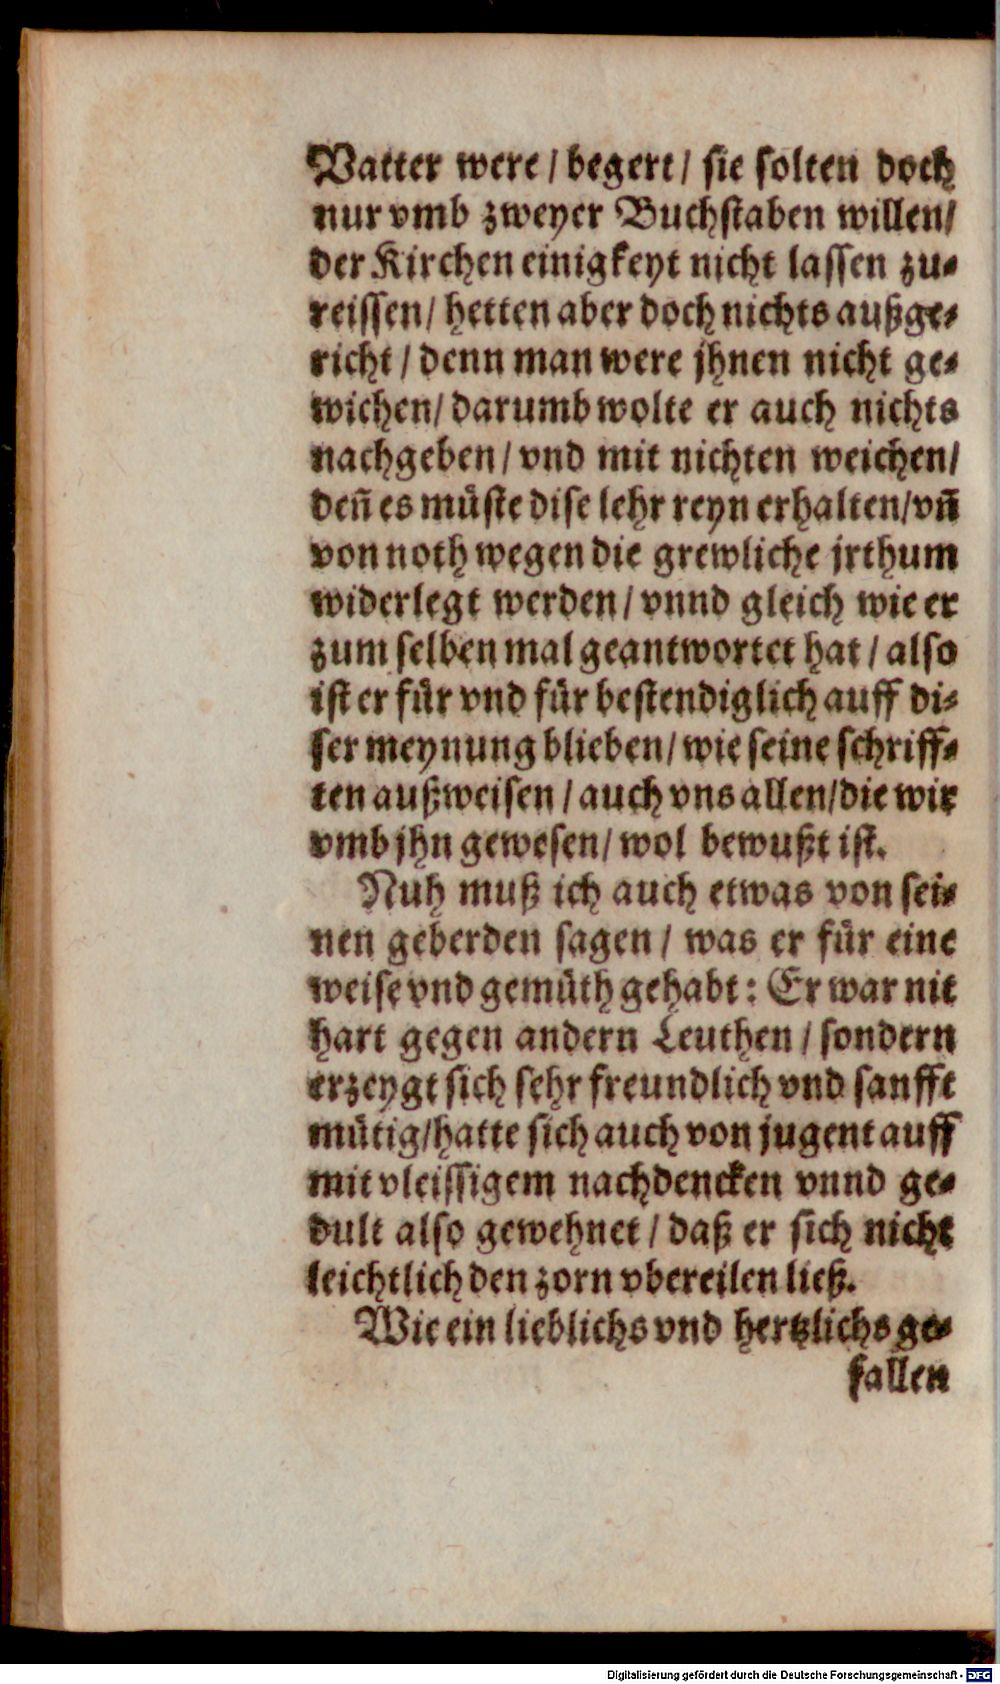 Vatter were / begert / sie solten doch
nur vmb zweyer Buchstaben willen/
der Kirchen einigkeyt nicht lassen zu-
reissen / hetten aber doch nichts außge-
richt / denn man were jhnen nicht ge-
wichen / darumb wolte er auch nichts
nachgeben / vnd mit nichten weichen/
deñ es müste dise lehr reyn erhalten/vñ
von noth wegen die grewliche jrthum
widerlegt werden / vnnd gleich wie er
zum selben mal geantwortet hat / also
ist er für vnd für bestendiglich auff di-
ser meynung blieben / wie seine schriff-
ten außweisen / auch vns allen/die wir
vmb jhn gewesen / wol bewußt ist.
Nuh muß ich auch etwas von sei-
nen geberden sagen / was er für eine
weise vnd gemüth gehabt : Er war nit
hart gegen andern Leuthen / sondern
erzeygt sich sehr freundlich vnd sanfft
mütig/hatte sich auch von jugent auff
mit vleissigem nachdencken vnnd ge-
dult also gewehnet / daß er sich nicht
leichtlich den zorn vbereilen ließ.
Wie ein lieblichs vnd hertzlichs ge-
fallen
Digitalisierung gefördert durch die Deutsche Forschungsgemeinschaft - DFG